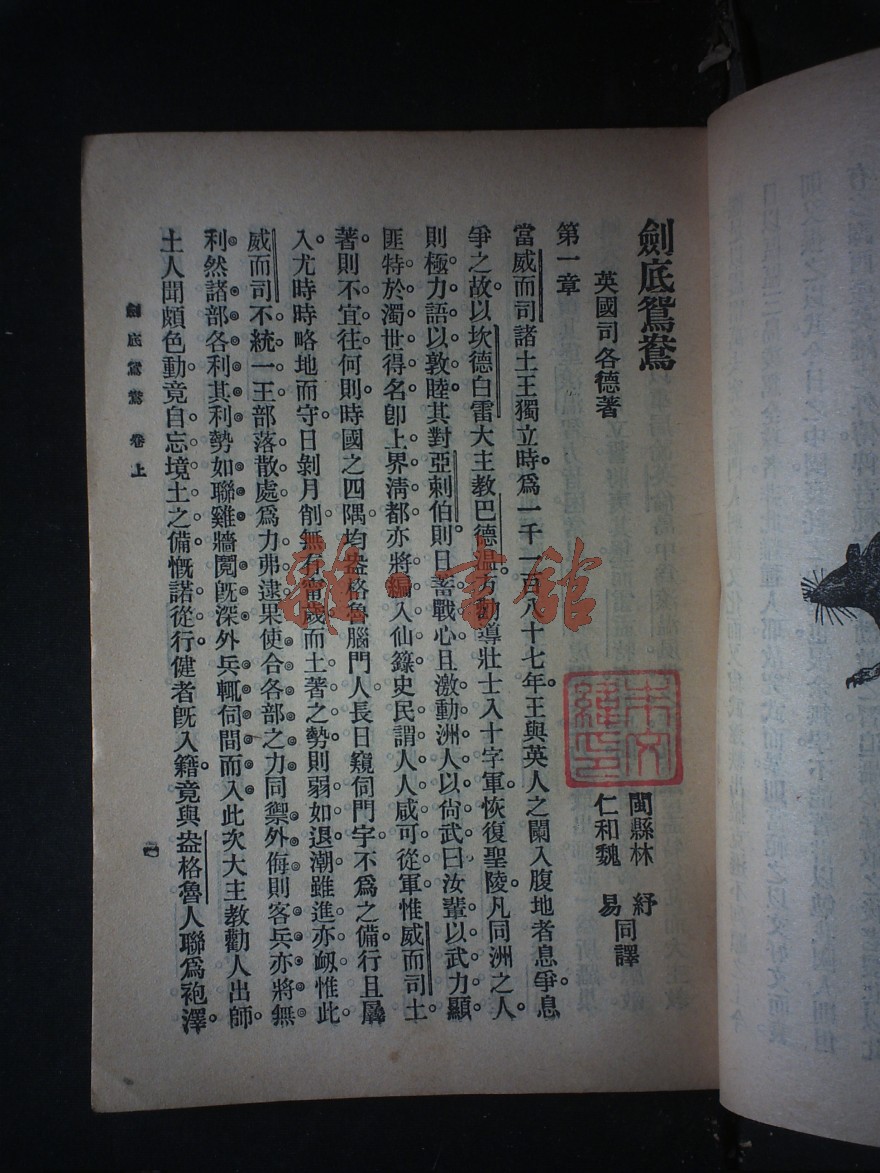 劍底鴛鴦
英國司各德著
閩縣林紓
仁和魏易
同譯
第一章
當威而司諸土王獨立時。爲一千一百八十七年。王與英人之闌入腹地者息爭。息
爭之故。以坎德白雷大主教巴德溫。方勸導壯士入十字軍。恢復聖陵。凡同洲之人。
則極力語以敦睦。其對亞剌伯。則日蓄戰心。且激動洲人以尙武。曰汝輩以武力顯。
匪特於濁世得名。卽上界淸都。亦將編入仙籙。史民謂人人咸可從軍。惟威而司土
著。則不宜往。何則。時國之四隅。均盎格魯腦門人。長日窺伺門宇。不爲之備。行且羼
入。尤時時略地而守。日剝月削。無有甯歲。而土著之勢則弱。如退潮雖進亦衂。惟此
威而司不統一王。部落散處。爲力弗逮。果使合各部之力。同禦外侮。則客兵亦將無
利。然諸部各利其利。勢如聯雞。牆鬩旣深。外兵輒伺間而入。此次大主教勸人出師。
土人聞頗色動。竟自忘境土之備。慨諾從行。健者旣入籍。竟與盎格魯人聯爲袍澤。
劍底鴛鴦 卷上
一
雜·書館